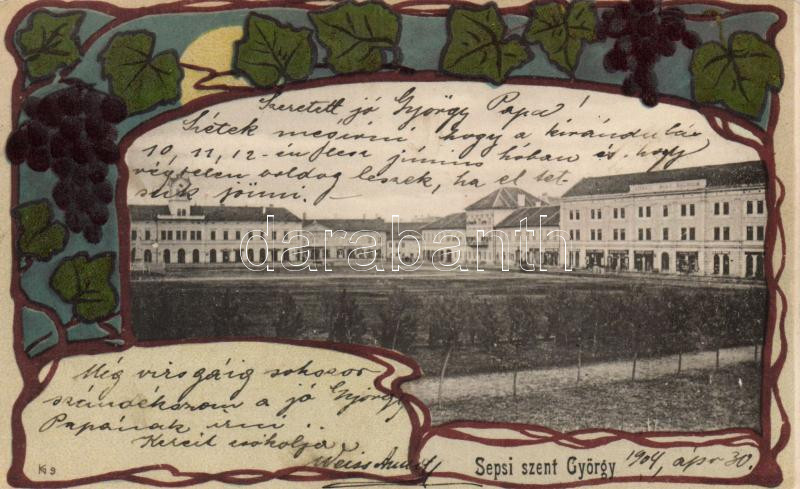 Szeretett jó György Papa!
Sietek megirni hogy a kirándulás
10, 11, 12-én lesz június hóban és hogy
végtelen boldog leszek, ha el tet-
szik jönni.
darabanth
Még vizsgáig sokszor
szándékszom a jó György
Papának irni
Kezeit csókolja
Weiss
Sepsi szent György 1904, ápr 30.
K 9